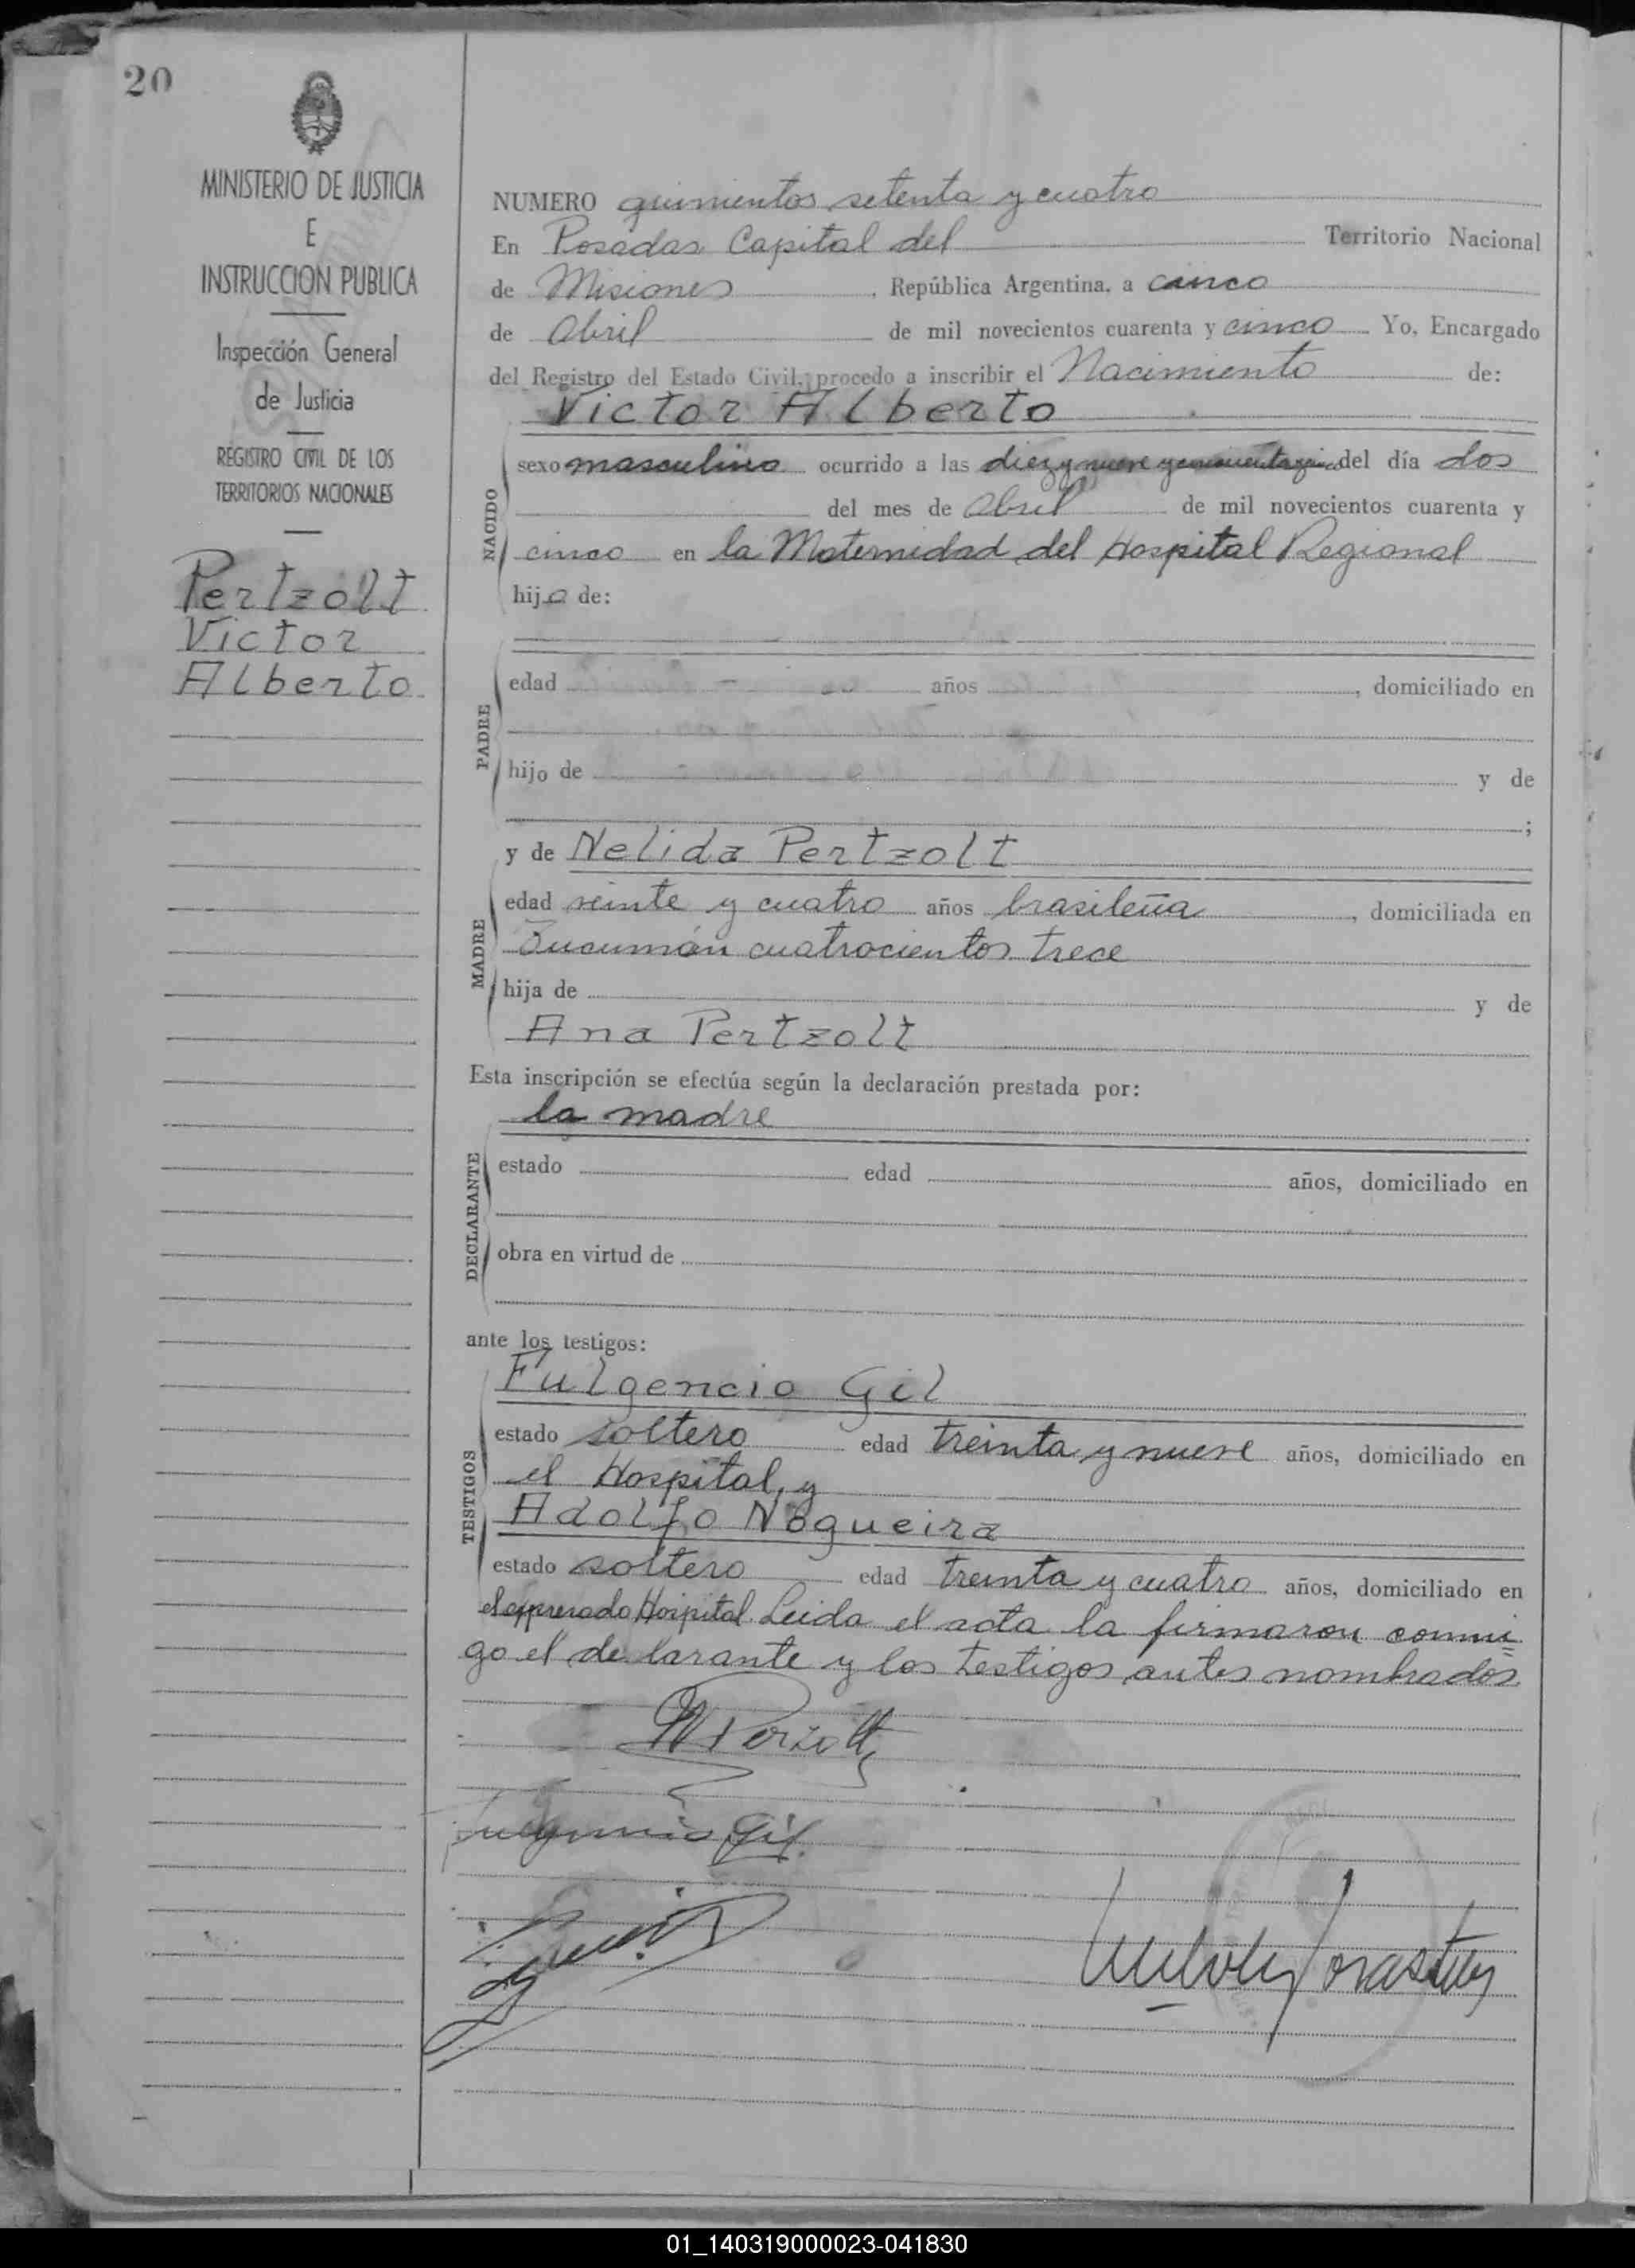 20
MINISTERIO DE JUSTICIA
E
INSTRUCCION PUBLICA
Inspección General
de Justicia
REGISTRO CIVIL DE LOS
TERRITORIOS NACIONALES
Pertzolt
Victor
Alberto
NUMERO quinientos setenta y cuatro
En Posadas Capital del Territorio Nacional
de Misiones, República Argentina, a cinco
de Abril de mil novecientos cuarenta y cinco Yo, Encargado
del Registro del Estado Civil, procedo a inscribir el Nacimiento de:
Victor Alberto
NACIDO
sexo masculino ocurrido a las diez y nueve y cincuenta y cinco del día dos
del mes de Abril de mil novecientos cuarenta y
cinco en la Maternidad del Hospital Regional
hijo de:
PADRE
edad años , domiciliado en
hijo de y de
;
y de Nelida Pertzolt
MADRE
edad veinte y cuatro años brasileña , domiciliada en
Tucumán cuatrocientos trece
hija de y de
Ana Pertzolt
Esta inscripción se efectúa según la declaración prestada por:
la madre
DECLARANTE
estado edad años, domiciliado en
obra en virtud de
ante los testigos:
Fulgencio Gil
TESTIGOS
estado soltero edad treinta y nueve años, domiciliado en
el Hospital, y
Adolfo Nogueira
estado soltero edad treinta y cuatro años, domiciliado en
el expresado Hospital. Leida el acta la firmaron conmi=
go el declarante y los testigos antes nombrados
Fulgencio Gil.
01_140319000023-041830